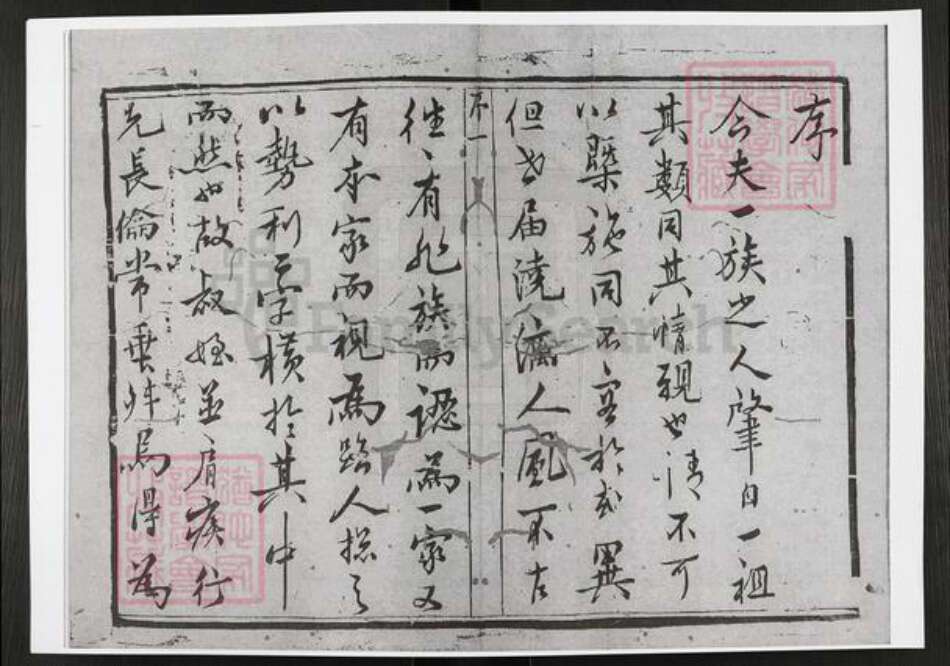 序
今夫一族之人肇自一祖
其類同其情親也情不可
以槩施同不容於或異
但世届澆漓人風不古
序一
往往有非族而認為一家又
有本家而視為路人揔之
以勢利二字橫於其中
而然也故叔姪並肩疾行
先長倫常乖舛焉得為
FamilySearch